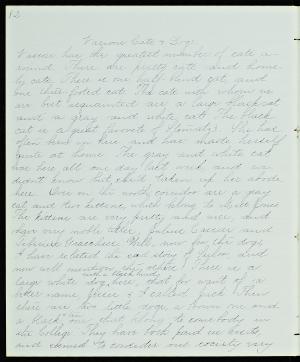 82
Various Cats & Dogs
Vassar has the greatest number of cats a-
round. There are pretty cats and home-
ly cats. There is one half-blind cat, and
one three-footed cat. The cats with whom we
are best acquainted are a large black cat
and a gray and white cat. The black
cat is a great favorite of She has
often been up here and has made herself
quite at home. The gray and white cat
was here all one day last week and we
didn't know but she'd taken up her abode
here. Over on the north corridor are a gray
cat and two kittens, which belong to Miss
The kittens are very pretty and nice, and
have very noble titles, Julius Caesar and
Well, now for the dogs.
I have related the sad story of and
now will mention the others. There is a
large white dog, here, that for want of a
better name we called Jack. Then
there are two little dogs, a brown one and
a black one, that belong to somebody in
the College. They have both paid us visits,
and seemed to consider our society very